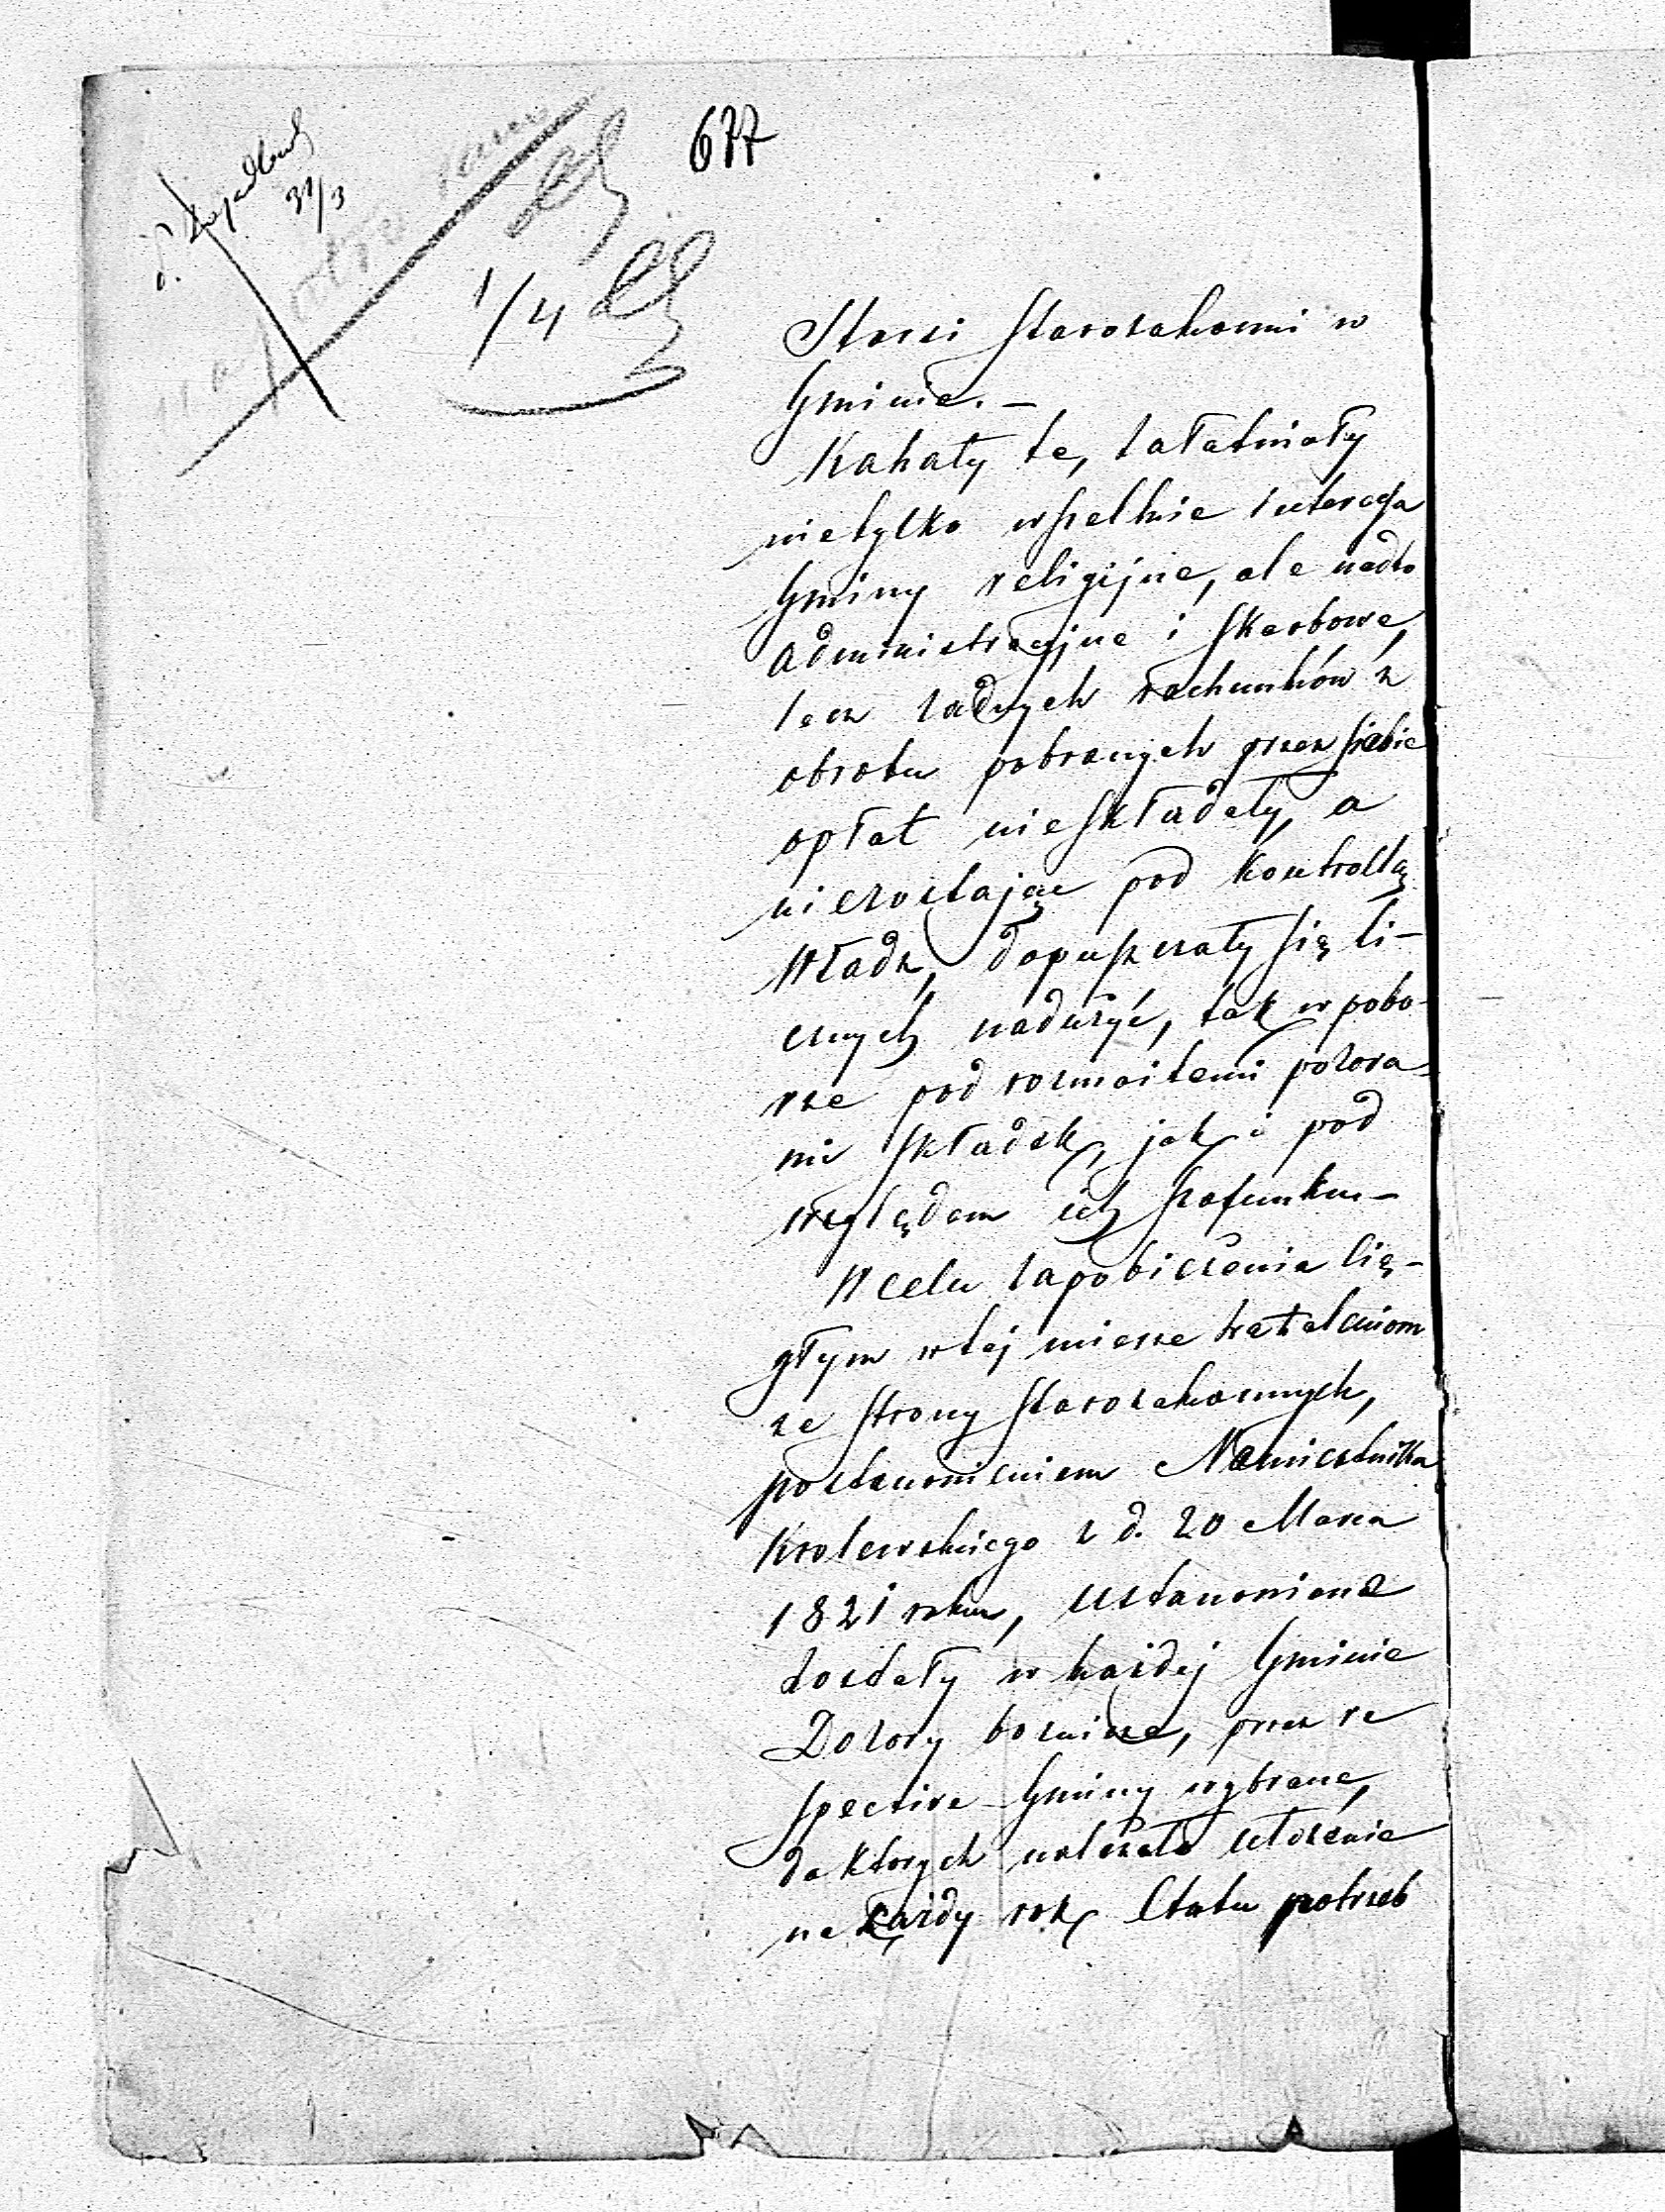 677
31/3
1/4
Starsi starozakonni w
Gminie. –
Kahały te, załatwiały
nietylko wszelkie interessa
Gminy religijne, ale nadto
administracyjne i skarbowe,
lecz żadnych rachunków z
obrotu pobranych przez siebie
opłat nieskładały, a
niezostając pod kontrollą
Władz, dopuszczały się li-
cznych nadużyć, tak w pobo-
rze pod rozmaitemi pozora-
mi składek, jak i pod
względem ich szafunku –
W celu zapobieżenia cią-
głym w tej mierze zażaleniom
ze strony starozakonnych,
postanowieniem Namiestnika
Krolewskiego z d. 20 Marca
1821 roku, ustanowione
zostały w każdej Gminie
Dozory boznicze, przez re
spective Gminy wybrane,
do ktorych należało ułożenie
na każdy rok Etatu potrzeb